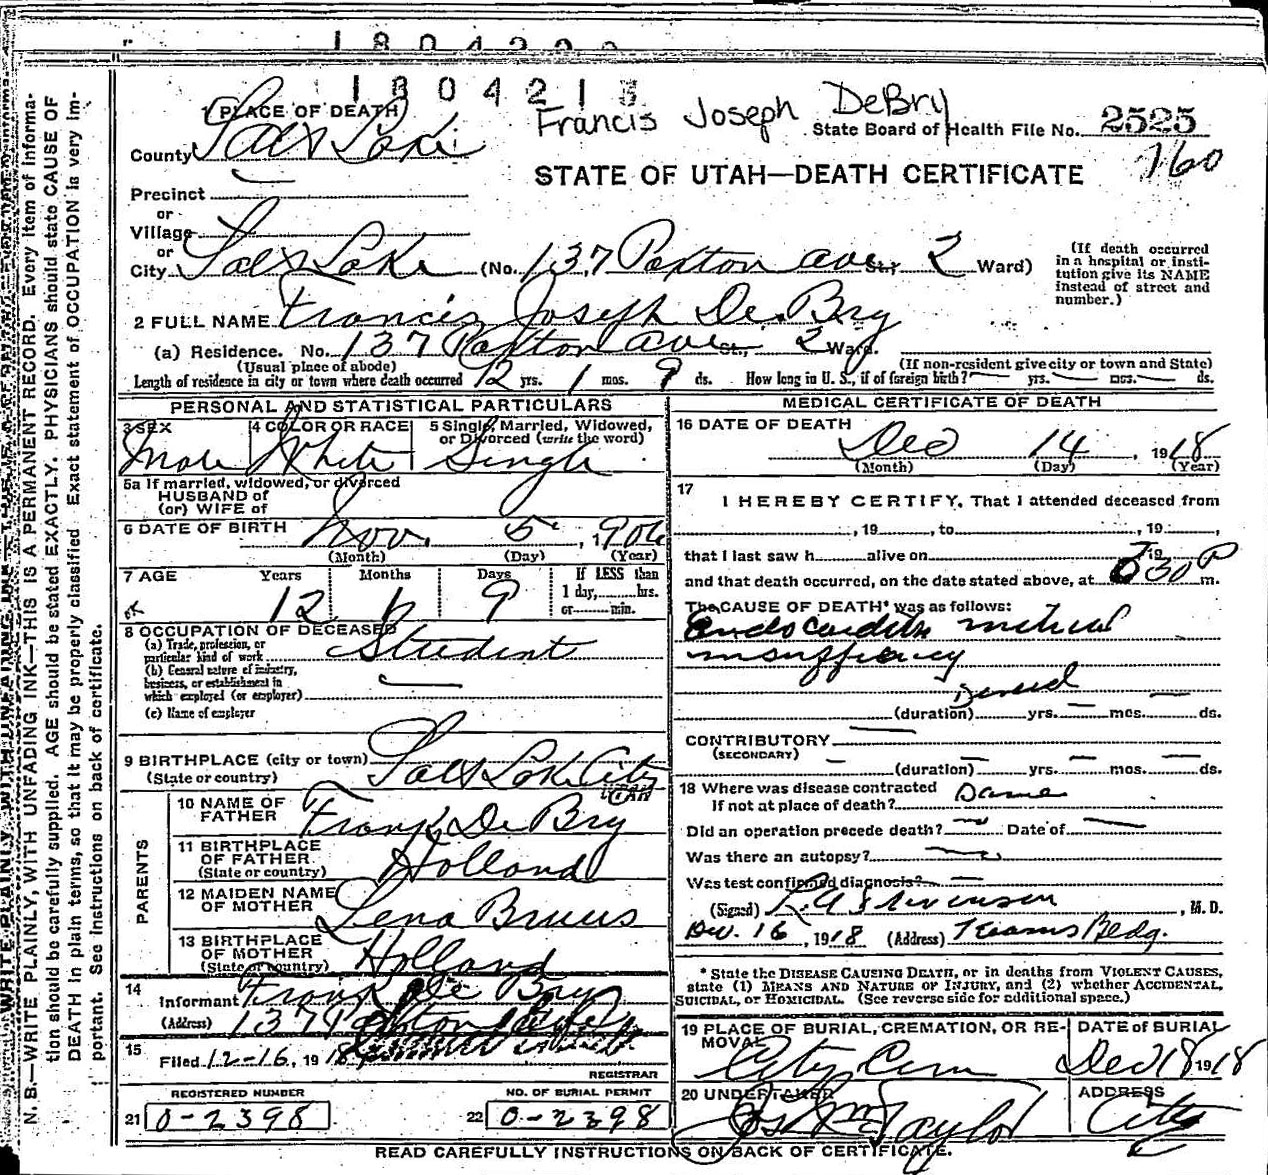 1804213
Francis Joseph DeBry
1 PLACE OF DEATH
State Board of Health File No. 2525
County Salt Lake
760
STATE OF UTAH—DEATH CERTIFICATE
Precinct
or
Village
or
City Salt Lake (No. 137 Paxton ave Str 2 Ward)
(If death occurred in a hospital or institution give its NAME instead of street and number.)
2 FULL NAME Francis Joseph De Bry
(a) Residence. No. 137 Paxton ave St., 2 Ward.
(Usual place of abode) (If non-resident give city or town and State)
Length of residence in city or town where death occurred 12 yrs. 1 mos. 9 ds. How long in U. S., if of foreign birth? — yrs. — mos. — ds.
PERSONAL AND STATISTICAL PARTICULARS
3 SEX 4 COLOR OR RACE 5 Single, Married, Widowed, or Divorced (write the word)
Male White Single
5a If married, widowed, or divorced
HUSBAND of
(or) WIFE of
6 DATE OF BIRTH Nov. 5, 1906
(Month) (Day) (Year)
7 AGE Years Months Days If LESS than
1 day,......hrs.
or......min.
12 1 9
8 OCCUPATION OF DECEASED
(a) Trade, profession, or
particular kind of work Student
(b) General nature of industry,
business, or establishment in
which employed (or employer)
(c) Name of employer
9 BIRTHPLACE (city or town) Salt Lake City
(State or country) UTAH
PARENTS
10 NAME OF FATHER Frank De Bry
11 BIRTHPLACE OF FATHER (State or country) Holland
12 MAIDEN NAME OF MOTHER Lena
13 BIRTHPLACE OF MOTHER (State or country) Holland
14 Informant Frank De Bry
(Address) 137 Paxton
15 Filed 12-16, 1918
REGISTRAR
REGISTERED NUMBER NO. OF BURIAL PERMIT
21 0-2398 22 0-2398
MEDICAL CERTIFICATE OF DEATH
16 DATE OF DEATH
Dec 14, 1918
(Month) (Day) (Year)
17 I HEREBY CERTIFY, That I attended deceased from
, 19 , to , 19 ,
that I last saw h alive on , 19
and that death occurred, on the date stated above, at 30 P m.
The CAUSE OF DEATH* was as follows:
Endocarditis mitral
insufficiency
(duration) yrs. — mos. — ds.
CONTRIBUTORY
(SECONDARY)
(duration) — yrs. — mos. — ds.
18 Where was disease contracted
If not at place of death? Same
Did an operation precede death? — Date of —
Was there an autopsy? —
Was test confirmed diagnosis? —
(Signed) Stevenson, M. D.
Dec. 16, 1918 (Address) Kearns Bldg.
* State the DISEASE CAUSING DEATH, or in deaths from VIOLENT CAUSES,
state (1) MEANS AND NATURE OF INJURY, and (2) whether ACCIDENTAL,
SUICIDAL, or HOMICIDAL. (See reverse side for additional space.)
19 PLACE OF BURIAL, CREMATION, OR REMOVAL DATE of BURIAL
City Cem Dec 18 1918
20 UNDERTAKER ADDRESS
Jos Wm Taylor City
READ CAREFULLY INSTRUCTIONS ON BACK OF CERTIFICATE.
N. B.—WRITE PLAINLY, WITH UNFADING INK—THIS IS A PERMANENT RECORD. Every item of informa-
tion should be carefully supplied. AGE should be stated EXACTLY. PHYSICIANS should state CAUSE OF
DEATH in plain terms, so that it may be properly classified. Exact statement of OCCUPATION is very im-
portant. See instructions on back of certificate.